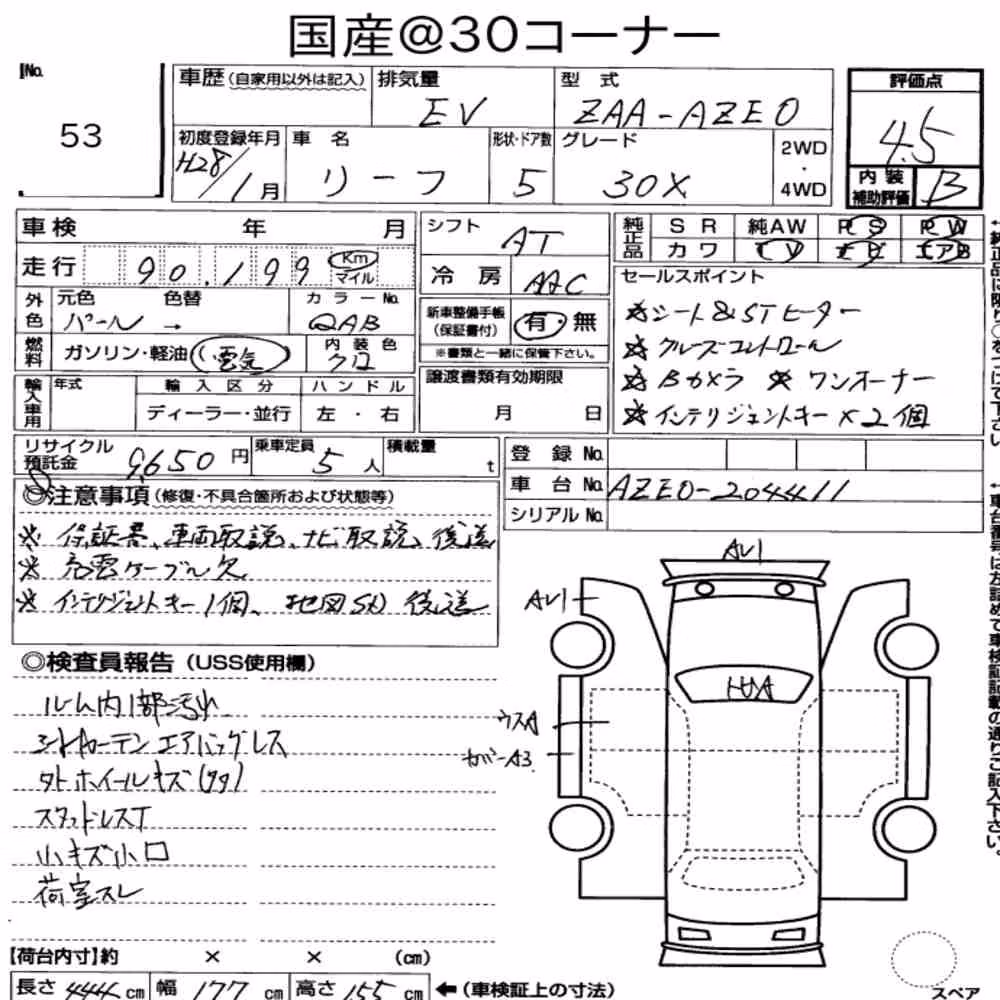 国産@30コーナー
No.
53
車歴(自家用以外は記入) 排気量 型式 評価点
EV ZAA-AZE0 4.5
初度登録年月 車名 形状・ドア数 グレード 2WD・4WD
H28/1月 リーフ 5 30X
内装補助評価 B
車検 年 月 シフト AT
純正品 SR 純AW PS PW
カワ TV ナビ エアB
走行 90,199 Km マイル
冷房 AAC
セールスポイント
外色 元色 色替 カラーNo.
パール → QAB
新車整備手帳(保証書付) 有・無
※書類と一緒に保管下さい。
☆シート&STヒーター
☆クルーズコントロール
☆Bカメラ ☆ワンオーナー
☆インテリジェントキー×2個
燃料 ガソリン・軽油(電気) 内装色 クロ
譲渡書類有効期限
月 日
輸入車用 年式 輸入区分 ハンドル
ディーラー・並行 左・右
リサイクル預託金 9650円 乗車定員 5人 積載量 t
登録No.
車台No. AZE0-204411
シリアルNo.
◎注意事項(修復・不具合箇所および状態等)
※保証書、車両取説、ナビ取説、後送
※充電ケーブル欠
※インテリジェントキー1個、地図SD 後送
◎検査員報告(USS使用欄)
ルーム内1部汚れ
シートカーテンエアバッグレス
タトホイールキズ
スタッドレスT
小キズ小凹
荷室スレ
AU1
AU1
ウスA
カバーA3
【荷台内寸】約 × × (cm)
長さ 444cm 幅 177cm 高さ 155cm ←(車検証上の寸法)
スペア
←純正品に限り○をつけて下さい
←車台番号は左詰めで車検証記載の通りご記入下さい。